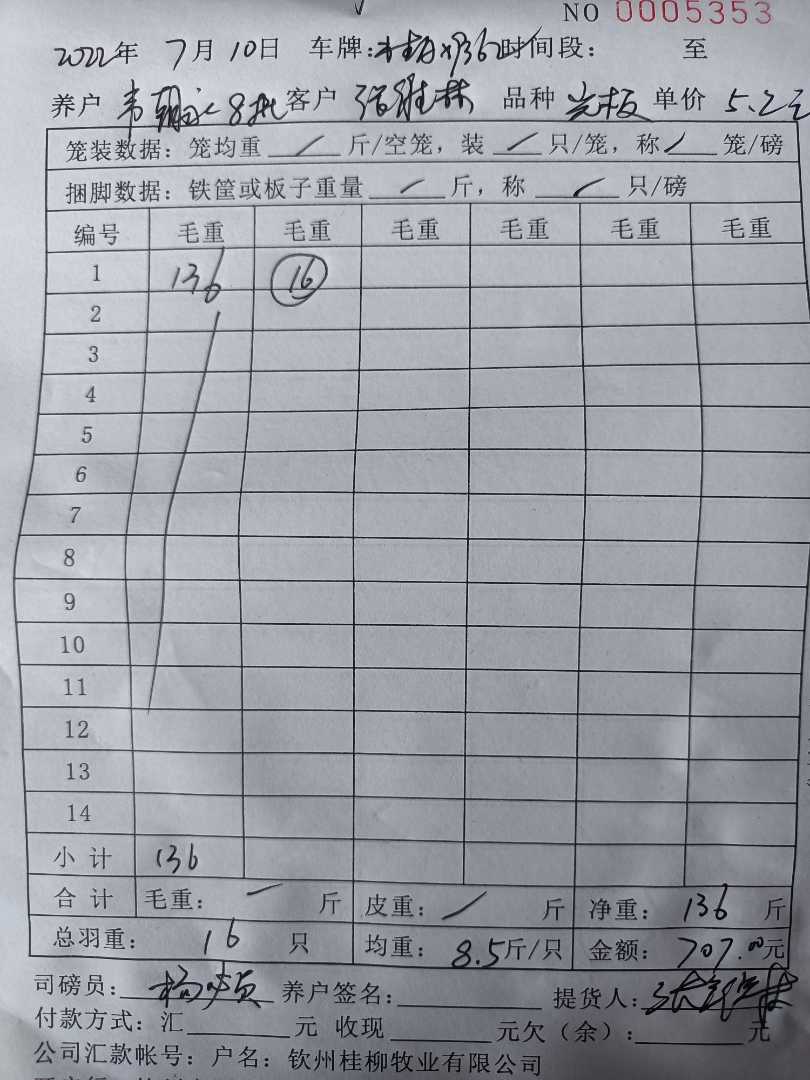 NO 0005353
2022年 7月10日 车牌: 时间段: 至
养户 韦 8批 客户 张 林 品种 光板 单价 5.2元
笼装数据: 笼均重 / 斤/空笼, 装 / 只/笼, 称 / 笼/磅
捆脚数据: 铁筐或板子重量 / 斤, 称 / 只/磅
编号 毛重 毛重 毛重 毛重 毛重 毛重
1 136 16
2
3
4
5
6
7
8
9
10
11
12
13
14
小计 136
合计 毛重: / 斤 皮重: / 斤 净重: 136 斤
总羽重: 16 只 均重: 8.5斤/只 金额: 707.00元
司磅员: 杨 养户签名: 提货人: 张 林
付款方式: 汇 元 收现 元欠(余): 元
公司汇款帐号: 户名: 钦州桂柳牧业有限公司